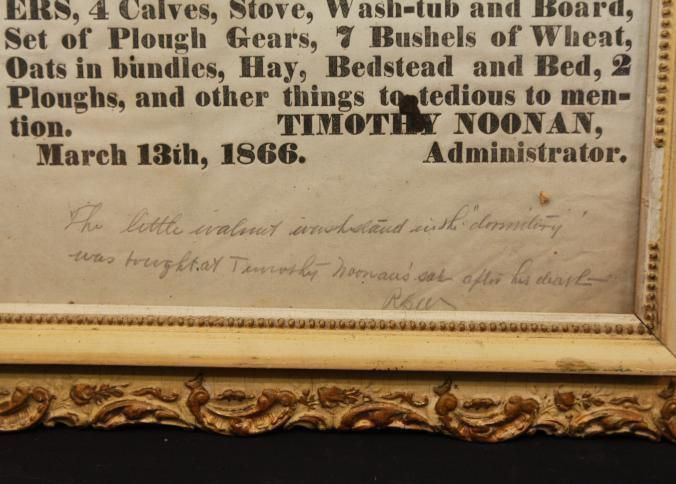 ERS, 4 Calves, Stove, Wash-tub and Board,
Set of Plough Gears, 7 Bushels of Wheat,
Oats in bundles, Hay, Bedstead and Bed, 2
Ploughs, and other things to tedious to men-
tion. TIMOTHY NOONAN,
March 13th, 1866. Administrator.
The little walnut washstand in the "dormitory"
was bought at Timothy Noonan's sale after his death